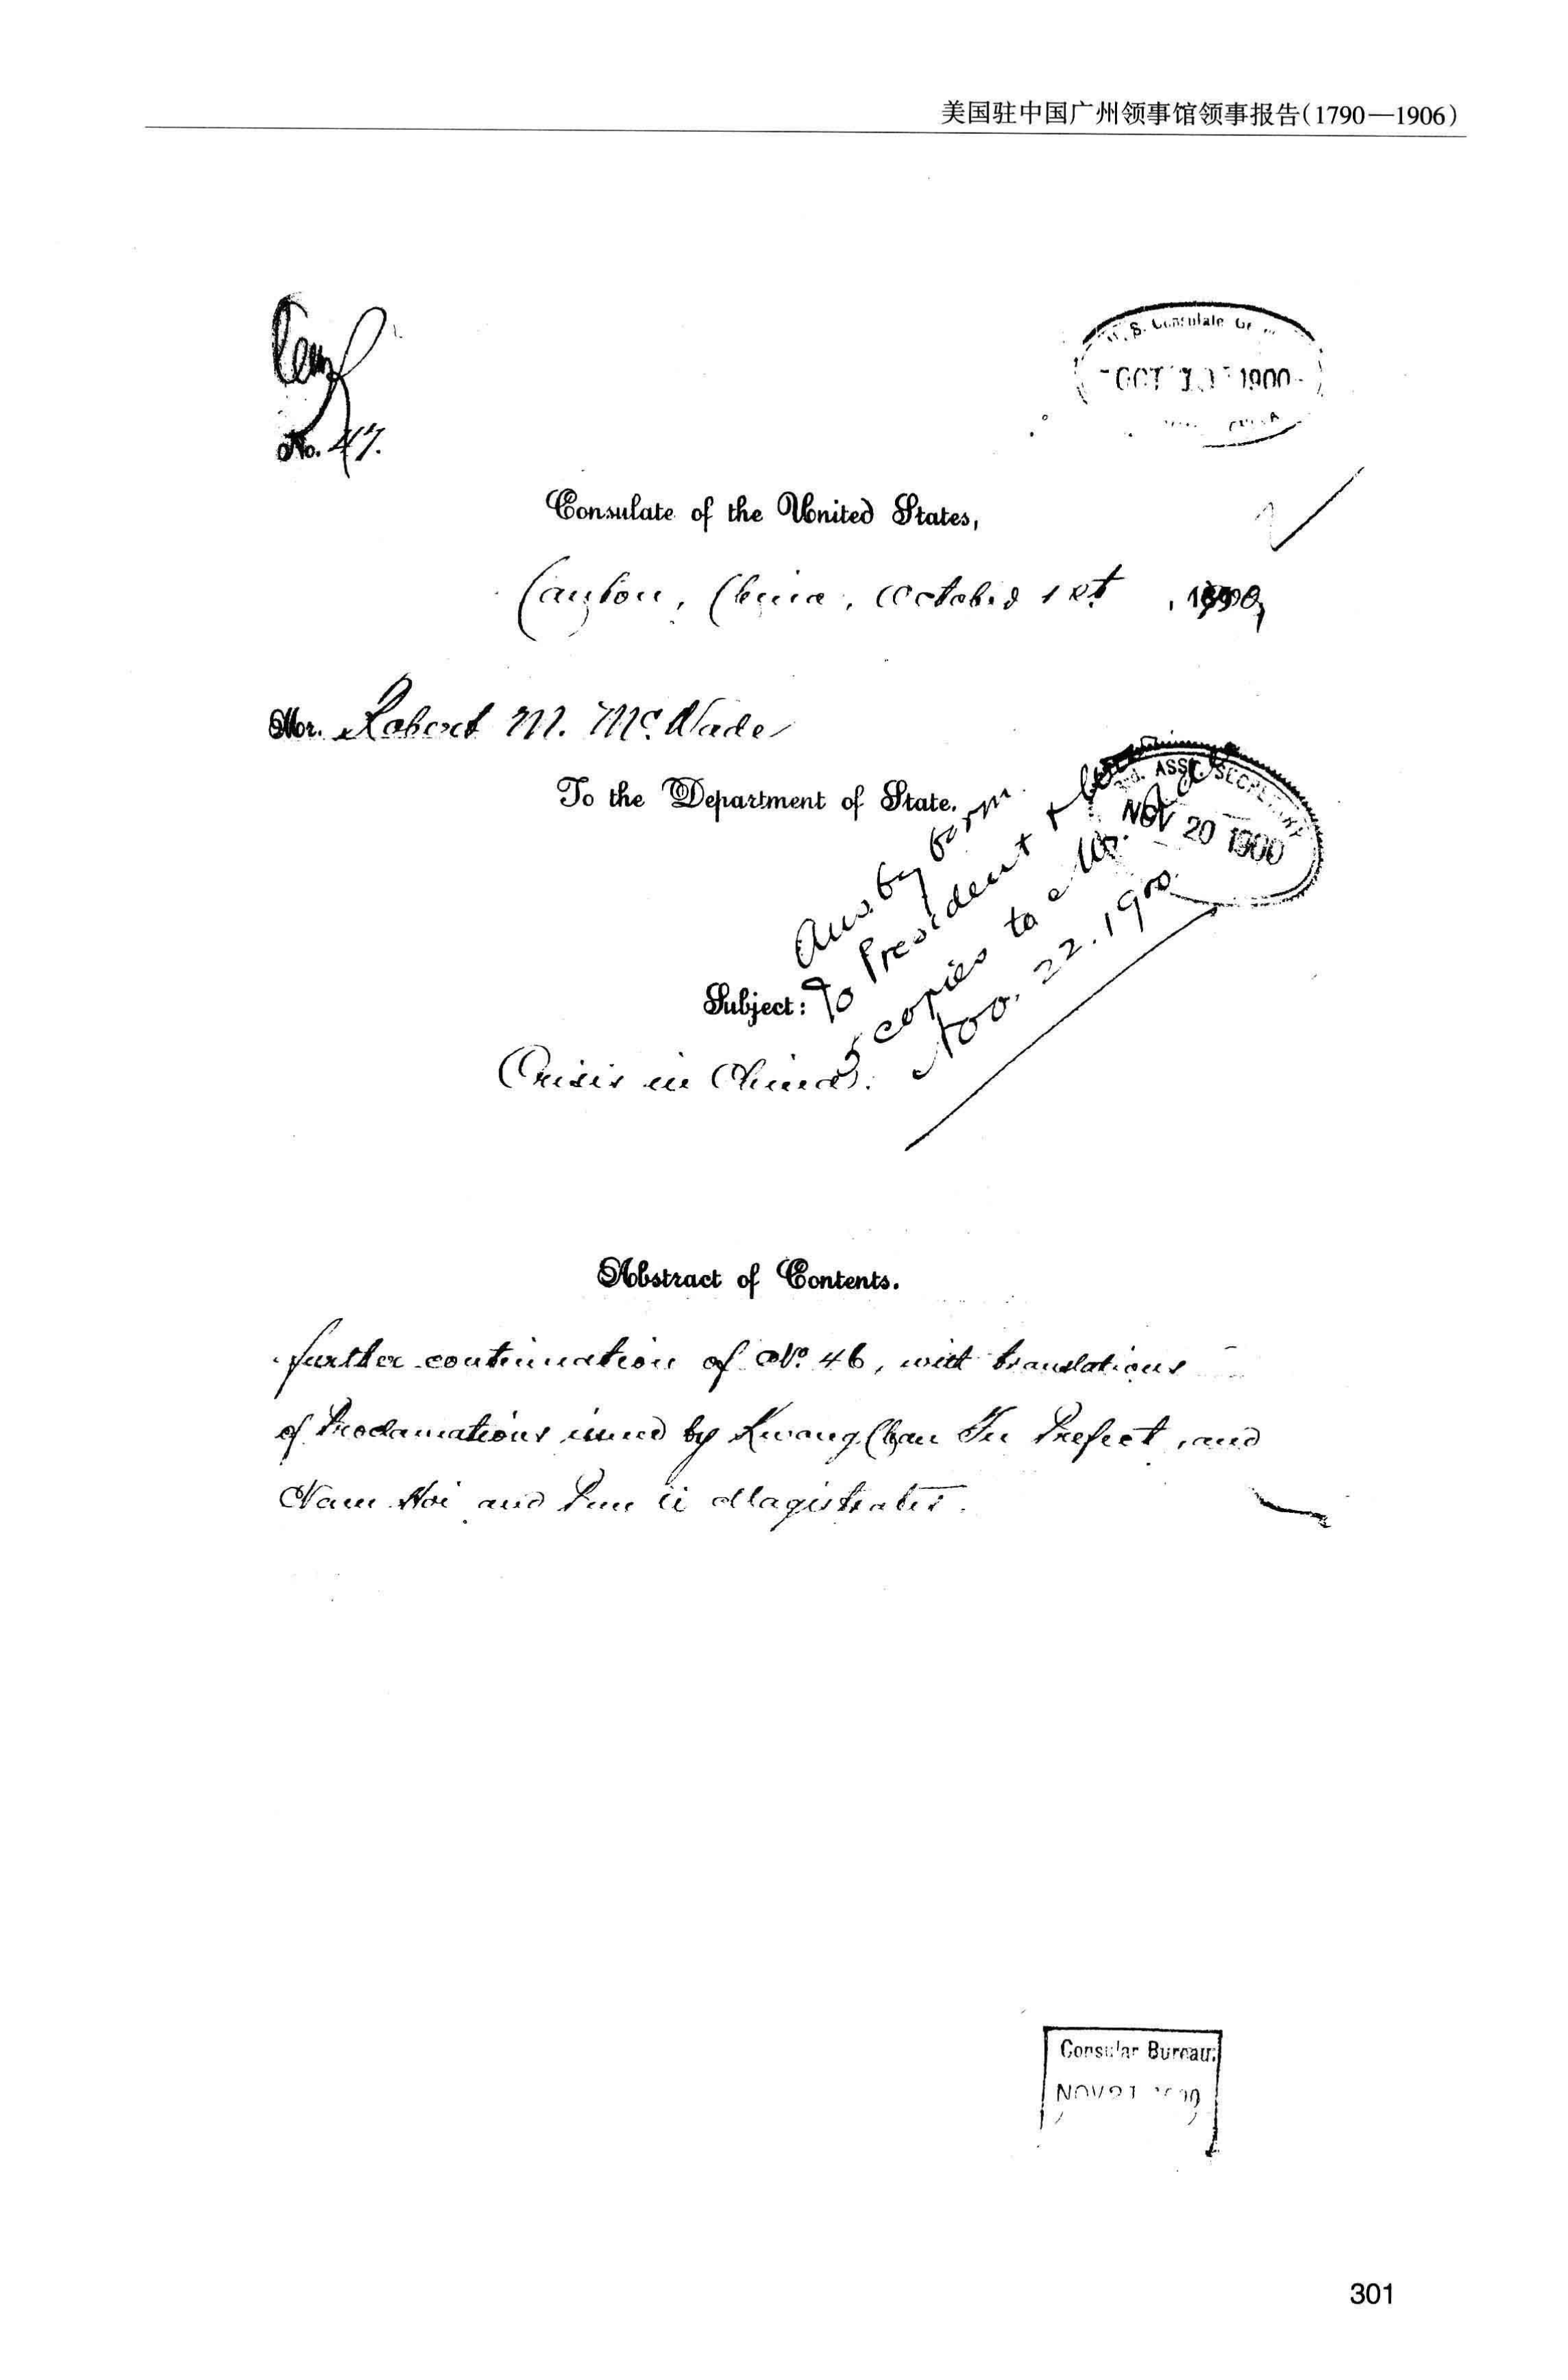 美国驻中国广州领事馆领事报告(1790—1906)
U.S. Consulate Ge
OCT 10 1900
No. 47.
Consulate of the United States,
Canton, China, October 1st, 1900,
Mr. Robert M. McWade
To the Department of State.
3rd. ASST. SECRETARY
NOV 20 1900
Ans by form
To President &
copies to Mr.
Nov. 22. 1900.
Subject:
Crisis in China.
Abstract of Contents.
further continuation of No. 46, with translations
of Proclamations issued by Kwang Chau Fu Prefect, and
Nam Hoi and Pun ü Magistrates.
Consular Bureau.
NOV 21 1900
301